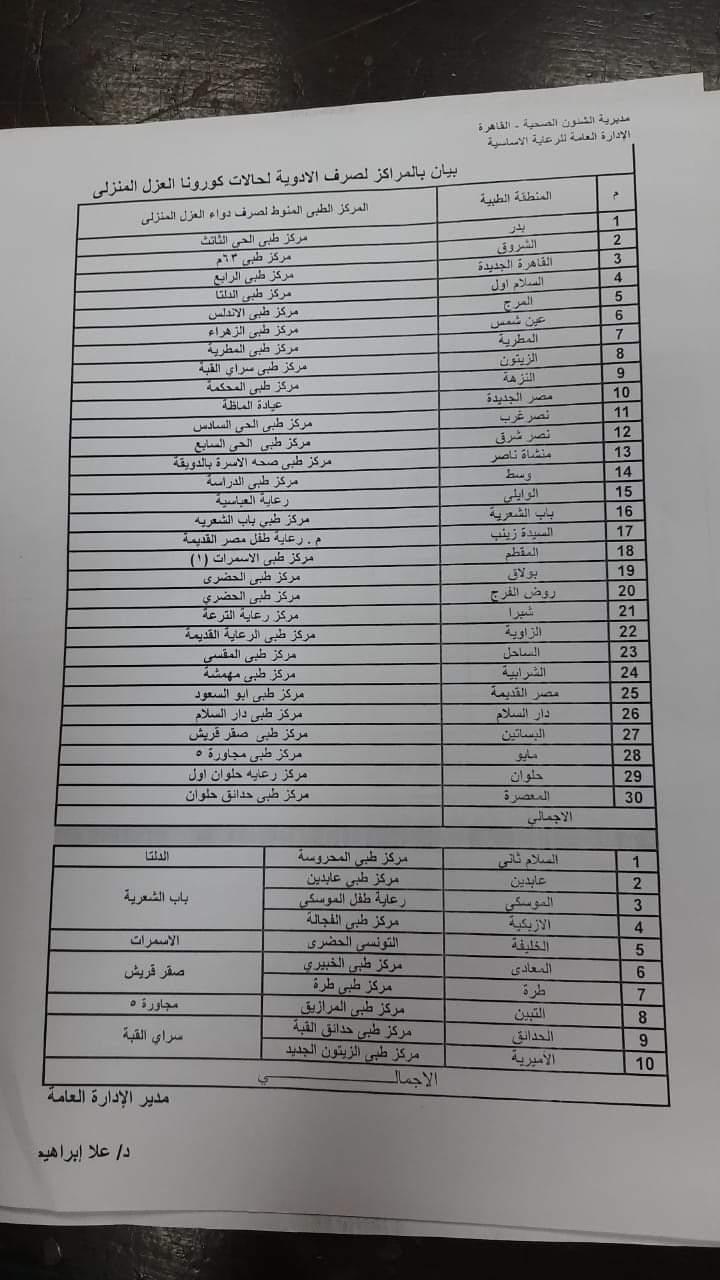 مديرية الشئون الصحية - القاهرة
الإدارة العامة للرعاية الاساسية
بيان بالمراكز لصرف الادوية لحالات كورونا العزل المنزلى
م المنطقة الطبية المركز الطبى المنوط لصرف دواء العزل المنزلى
1 بدر مركز طبى الحى الثالث
2 الشروق مركز طبى ٦٣م
3 القاهرة الجديدة مركز طبى الرابع
4 السلام اول مركز طبى الدلتا
5 المرج مركز طبى الاندلس
6 عين شمس مركز طبى الزهراء
7 المطرية مركز طبى المطرية
8 الزيتون مركز طبى سراي القبة
9 النزهة مركز طبى المحكمة
10 مصر الجديدة عيادة الماظة
11 نصر غرب مركز طبى الحى السادس
12 نصر شرق مركز طبى الحى السابع
13 منشاة ناصر مركز طبى صحه الاسرة بالدويقة
14 وسط مركز طبى الدراسة
15 الوايلي رعاية العباسية
16 باب الشعرية مركز طبي باب الشعريه
17 السيدة زينب م . رعاية طفل مصر القديمة
18 المقطم مركز طبى الاسمرات (١)
19 بولاق مركز طبى الحضرى
20 روض الفرج مركز طبى الحضري
21 شبرا مركز رعاية الترعة
22 الزاوية مركز طبى الرعاية القديمة
23 الساحل مركز طبى المقسى
24 الشرابية مركز طبى مهمشة
25 مصر القديمة مركز طبى ابو السعود
26 دار السلام مركز طبى دار السلام
27 البساتين مركز طبى صقر قريش
28 مايو مركز طبى مجاورة ٥
29 حلوان مركز رعايه حلوان اول
30 المعصرة مركز طبى حدائق حلوان
الاجمالي
1 السلام ثانى مركز طبي المحروسة الدلتا
2 عابدين مركز طبي عابدين
3 الموسكي رعاية طفل الموسكي باب الشعرية
4 الازبكية مركز طبى الفجالة
5 الخليفة التونسي الحضرى الاسمرات
6 المعادى مركز طبى الخبيري صقر قريش
7 طرة مركز طبي طرة
8 التبين مركز طبى المرازيق مجاورة ٥
9 الحدائق مركز طبى حدائق القبة سراي القبة
10 الأميرية مركز طبى الزيتون الجديد
الاجمالـــــــــــي
مدير الإدارة العامة
د/ علا إبراهيم